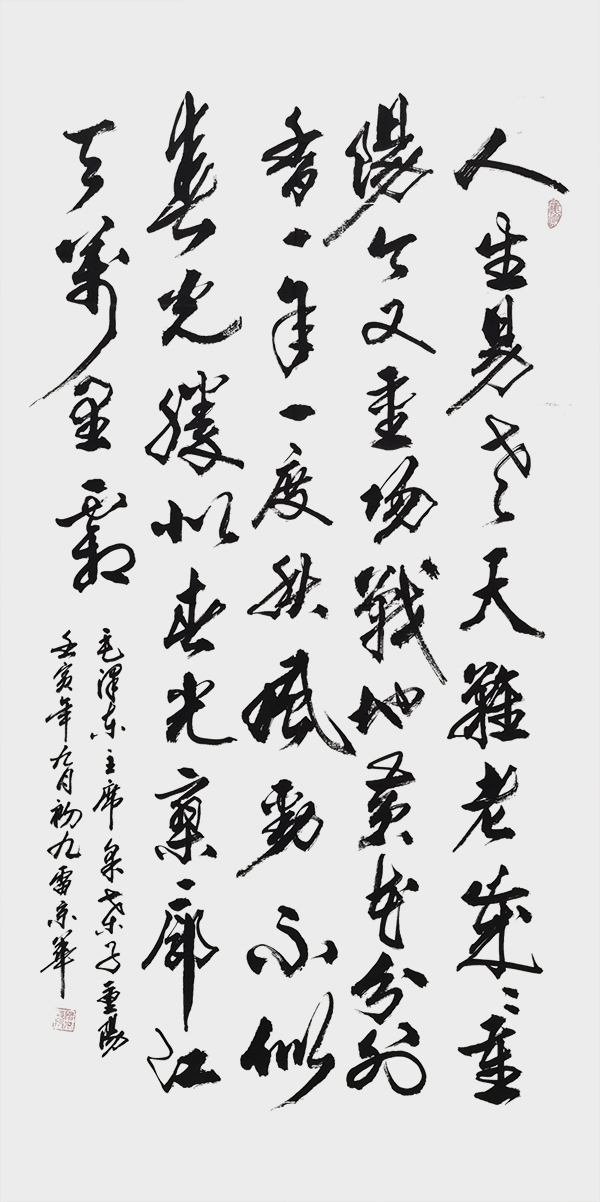 人生易老天難老歲〻重
陽今又重陽戰地黃花分外
香一年一度秋風勁不似
春光勝似春光寥廓江
天萬里霜
毛澤东主席采桑子重陽
壬寅年九月初九雷京華